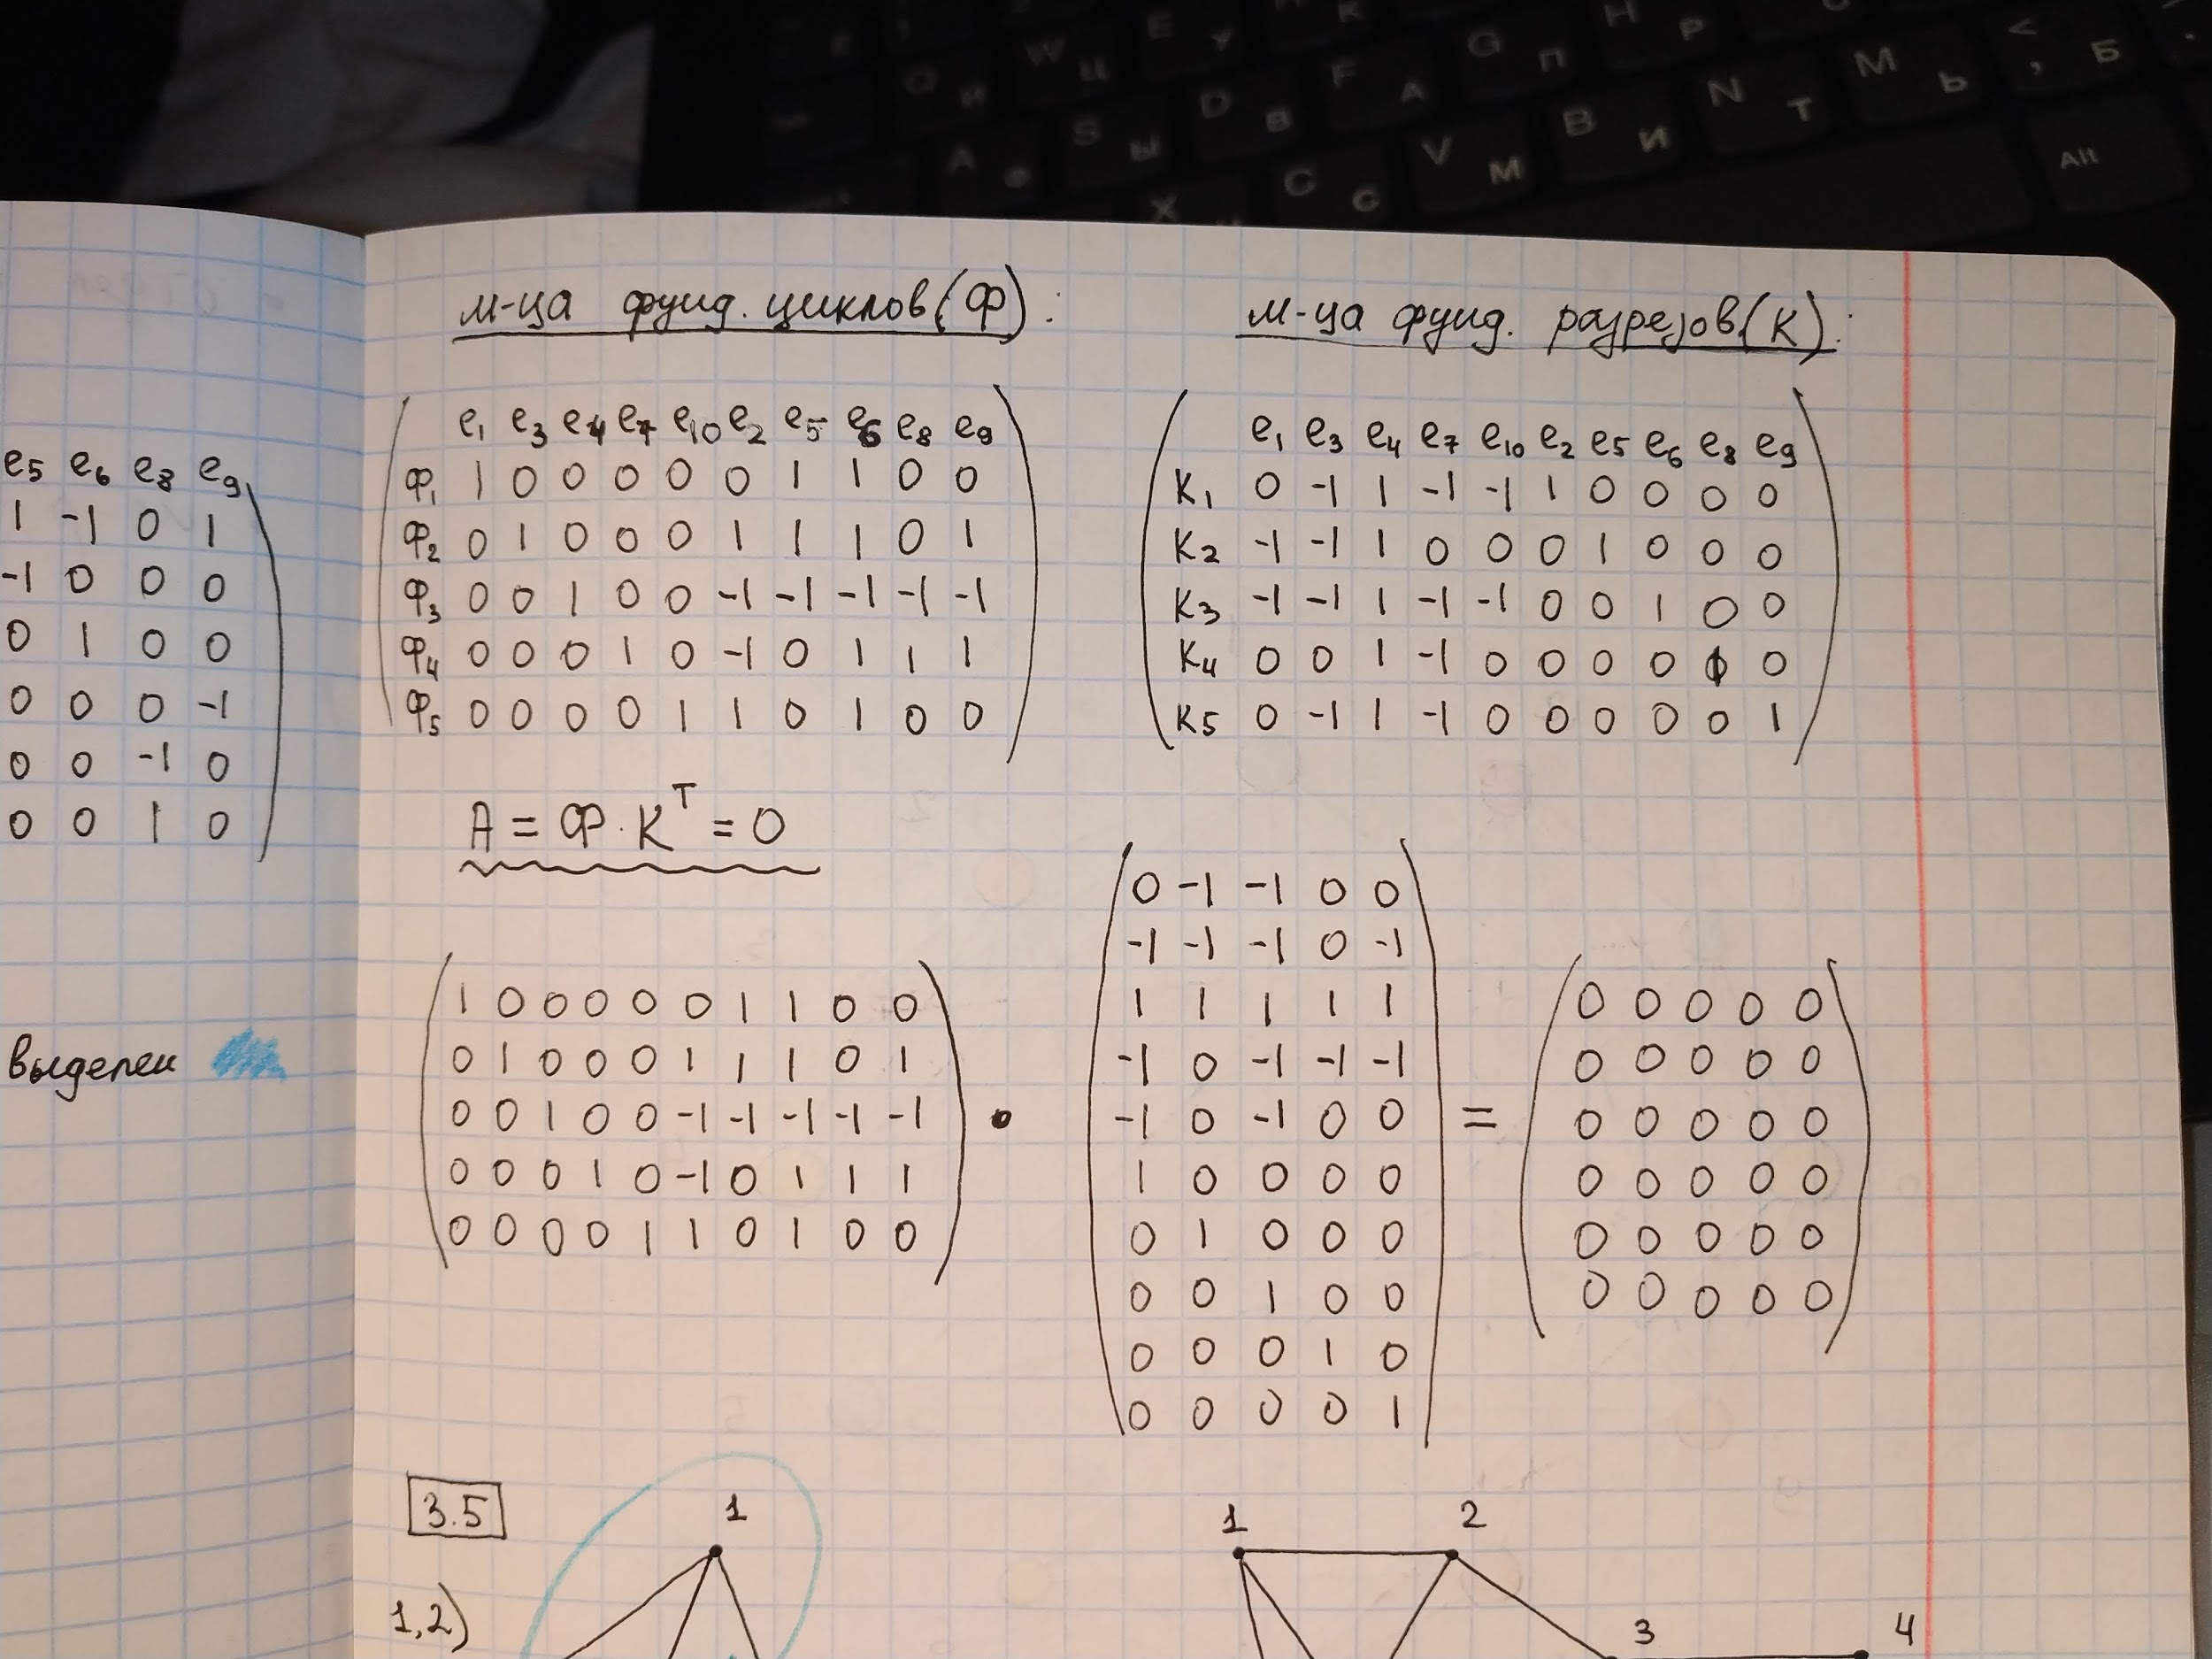 W Ц E У К G П Н Р M Ь < , Б
Q Й F А D В S Ы A Ф N Т B И V М C С X Alt
м-ца фунд. циклов (Ф):
м-ца фунд. разрезов (К):
e5 e6 e8 e9
1 -1 0 1
-1 0 0 0
0 1 0 0
0 0 0 -1
0 0 -1 0
0 0 1 0
выделен
e1 e3 e4 e7 e10 e2 e5 e6 e8 e9
Ф1 1 0 0 0 0 0 1 1 0 0
Ф2 0 1 0 0 0 1 1 1 0 1
Ф3 0 0 1 0 0 -1 -1 -1 -1 -1
Ф4 0 0 0 1 0 -1 0 1 1 1
Ф5 0 0 0 0 1 1 0 1 0 0
e1 e3 e4 e7 e10 e2 e5 e6 e8 e9
K1 0 -1 1 -1 -1 1 0 0 0 0
K2 -1 -1 1 0 0 0 1 0 0 0
K3 -1 -1 1 -1 -1 0 0 1 0 0
K4 0 0 1 -1 0 0 0 0 1 0
K5 0 -1 1 -1 0 0 0 0 0 1
A = Ф · K^T = 0
1 0 0 0 0 0 1 1 0 0
0 1 0 0 0 1 1 1 0 1
0 0 1 0 0 -1 -1 -1 -1 -1
0 0 0 1 0 -1 0 1 1 1
0 0 0 0 1 1 0 1 0 0
·
0 -1 -1 0 0
-1 -1 -1 0 -1
1 1 1 1 1
-1 0 -1 -1 -1
-1 0 -1 0 0
1 0 0 0 0
0 1 0 0 0
0 0 1 0 0
0 0 0 1 0
0 0 0 0 1
=
0 0 0 0 0
0 0 0 0 0
0 0 0 0 0
0 0 0 0 0
0 0 0 0 0
0 0 0 0 0
3.5
1,2)
1
1 2
3 4